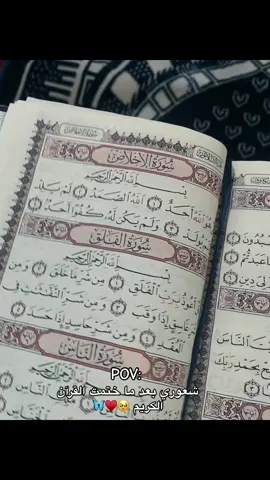 سُورَةُ الإِخْلَاصِ
بِسْمِ اللَّهِ الرَّحْمَٰنِ الرَّحِيمِ
هُوَ اللَّهُ أَحَدٌ ١ اللَّهُ الصَّمَدُ ٢ لَمْ يَلِدْ
يُولَدْ ٣ وَلَمْ يَكُن لَّهُ كُفُوًا أَحَدٌ ٤
سُورَةُ الْفَلَقِ
بِسْمِ اللَّهِ الرَّحْمَٰنِ الرَّحِيمِ
أَعُوذُ بِرَبِّ الْفَلَقِ ١ مِن شَرِّ مَا خَلَقَ ٢ وَمِن
شَرِّ غَاسِقٍ إِذَا وَقَبَ ٣ وَمِن شَرِّ النَّفَّٰثَٰتِ فِي
الْعُقَدِ ٤ وَمِن شَرِّ حَاسِدٍ إِذَا حَسَدَ ٥
سُورَةُ النَّاسِ
بِسْمِ اللَّهِ الرَّحْمَٰنِ الرَّحِيمِ
النَّاسِ
POV:
شعوري بعد ما ختمت القرآن
الكريم 🥹❤️🦋